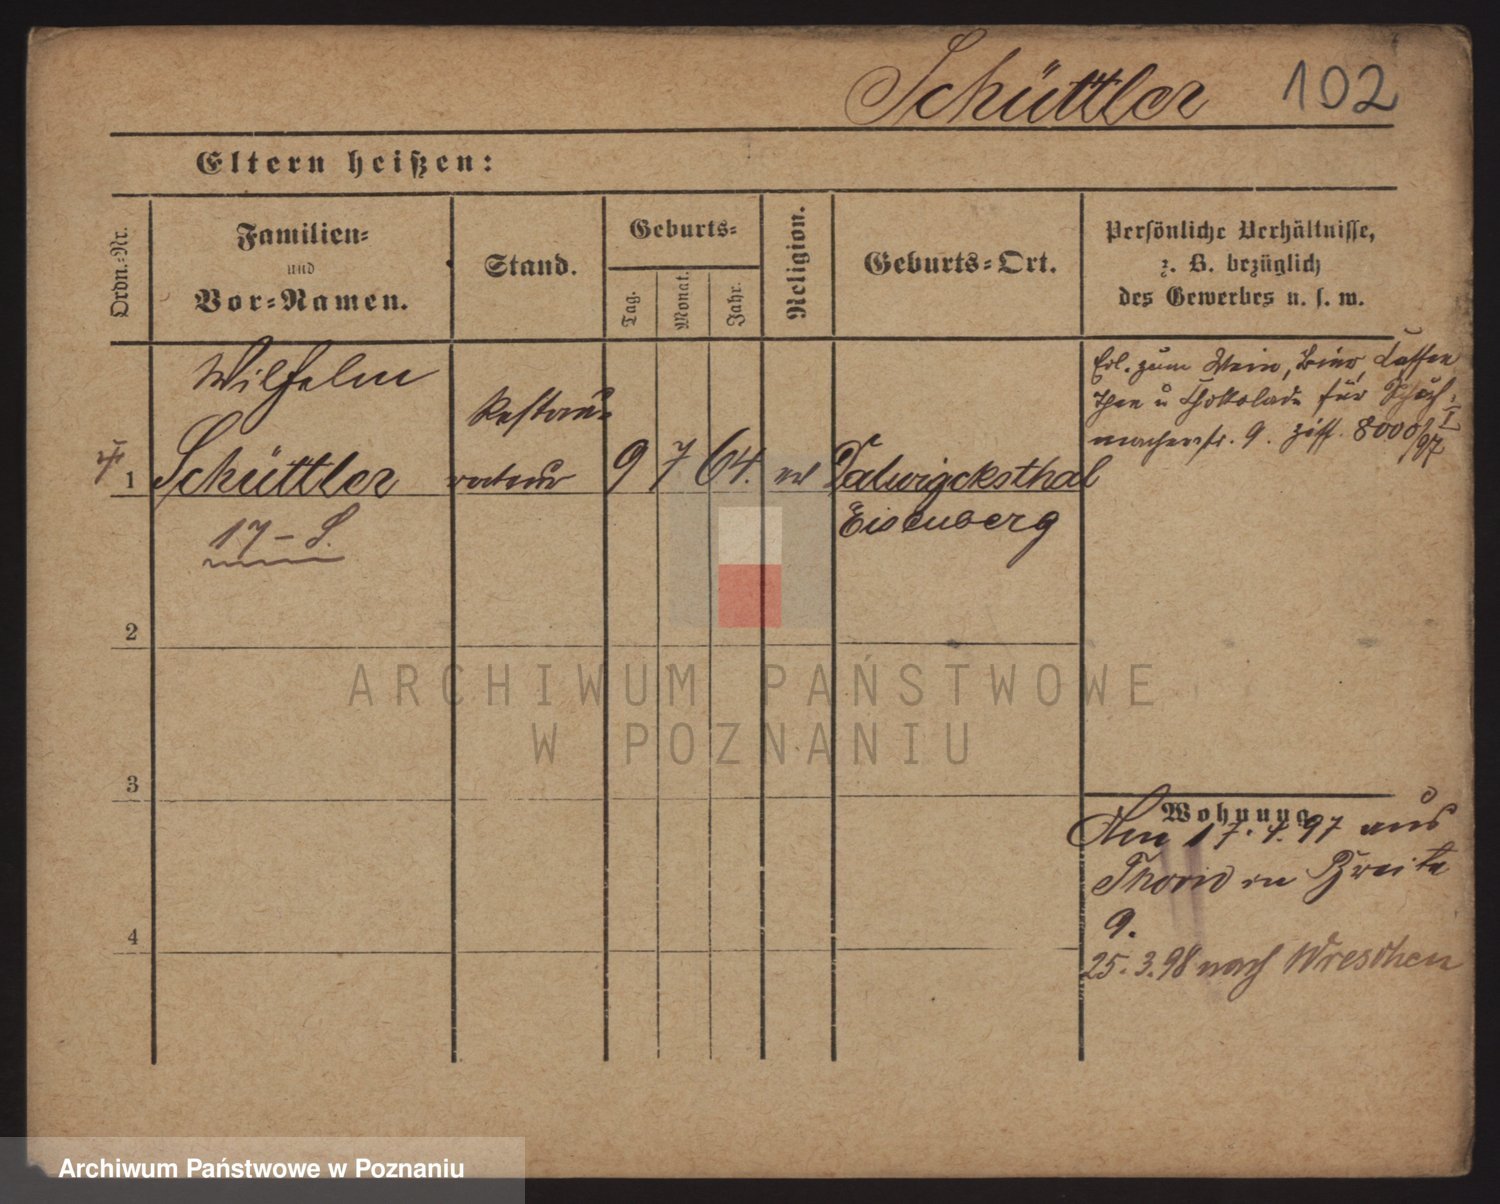 Schüttler 102
Eltern heißen:
Ordn.=Nr.
Familien=
und
Vor=Namen.
Stand.
Geburts=
Tag.
Monat.
Jahr.
Religion.
Geburts=Ort.
Persönliche Verhältnisse,
z. B. bezüglich
des Gewerbes u. s. w.
Wilhelm
Restau=
1 Schüttler rateur 9 7 64. ev Dalwigcksthal
Eisenberg
17 - S.
Erl. zum Wein, Bier, Caffee
Thee u Chokolade für Schuh=
macherstr. 9. Ziff. 8000/97 I
2
3
4
Wohnung
Am 17.4.97 aus
Thorn in Breite
9.
25.3.98 nach Wreschen
ARCHIWUM PAŃSTWOWE
W POZNANIU
Archiwum Państwowe w Poznaniu